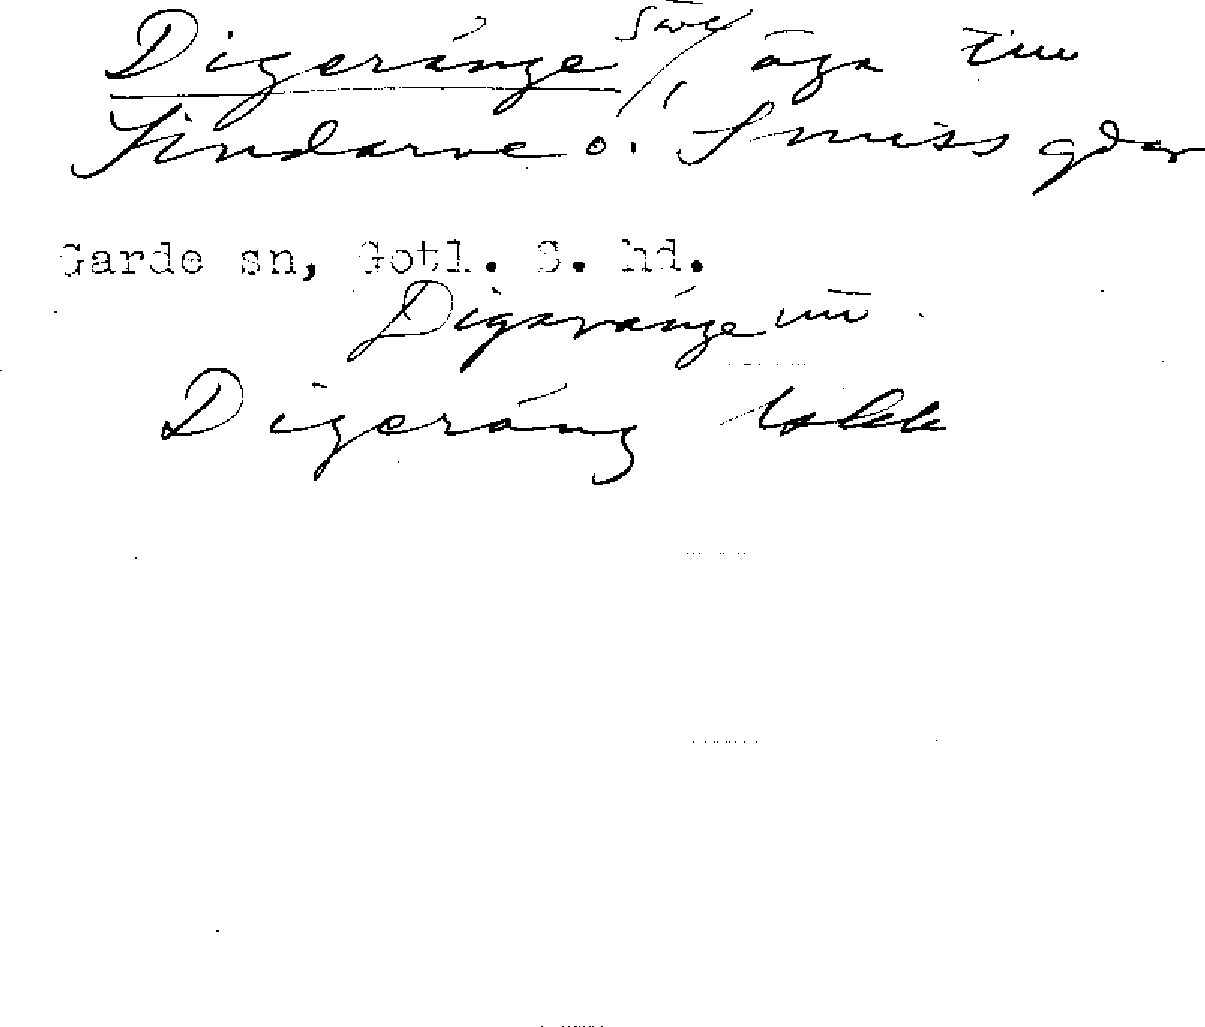 Digeránge / , äga till
Sindarve o. Smiss gdar
Garde sn, Gotl. S. hd.
Digaránge
Digeráng